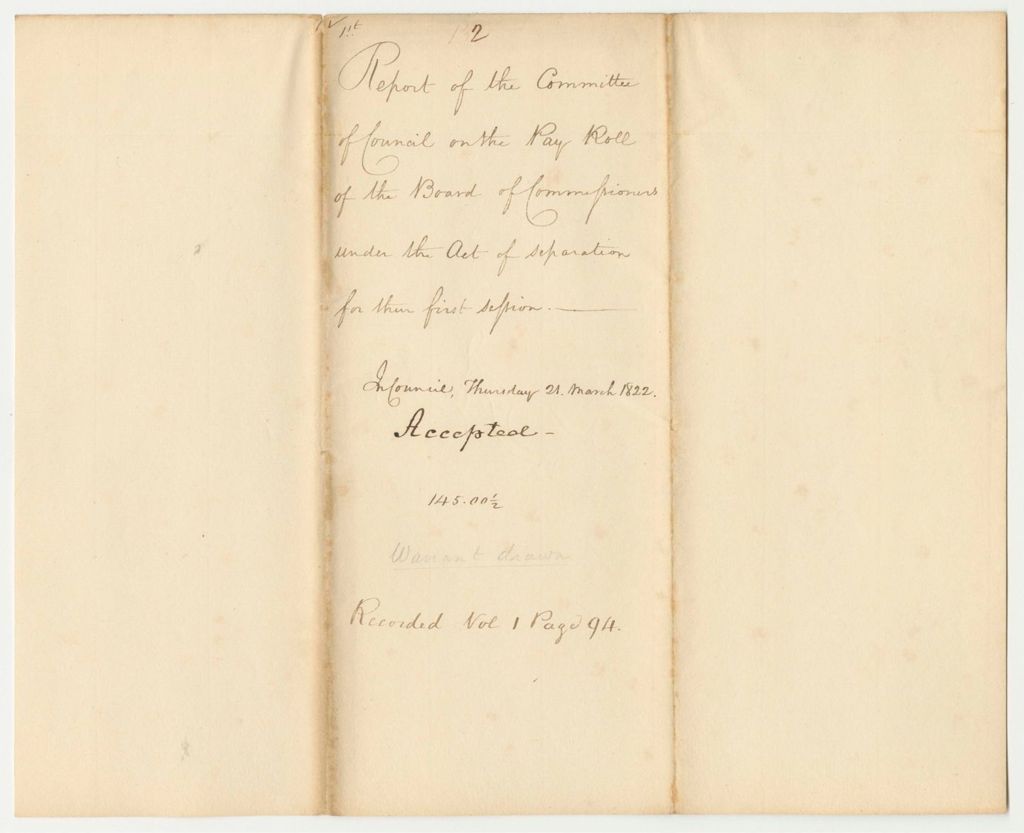 1st
2
Report of the Committee
of Council on the Pay Roll
of the Board of Commissioners
under the Act of separation
for their first session. —
In Council, Thursday 21. March 1822.
Accepted –
145.00½
Warrant drawn
Recorded Vol 1 Page 94.